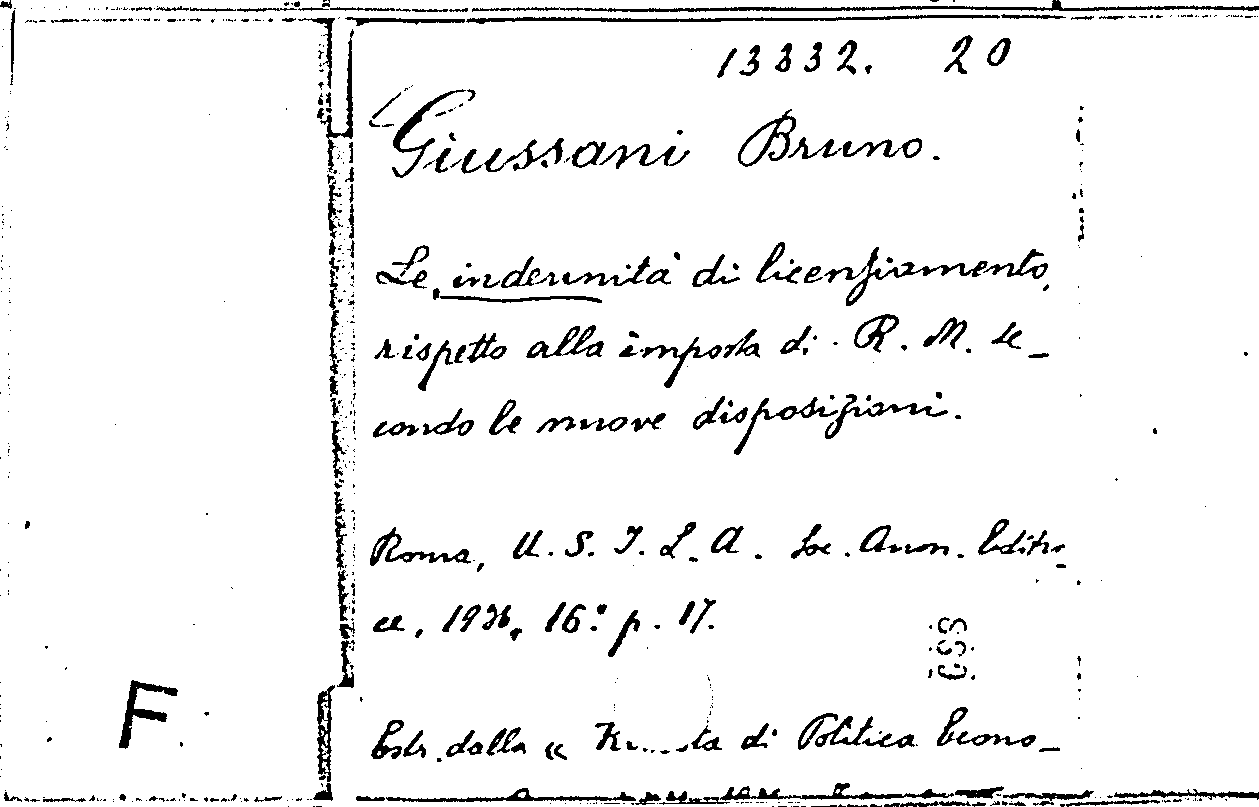 13332. 20
Giussani Bruno.
Le indennità di licenziamento,
rispetto alla imposta di R. M. se-
condo le nuove disposizioni.
Roma, U. S. I. L. A. Soc. Anon. Editri-
ce, 16.° p. 17.
CSS
F
Estr. dalla « di Politica Econo-